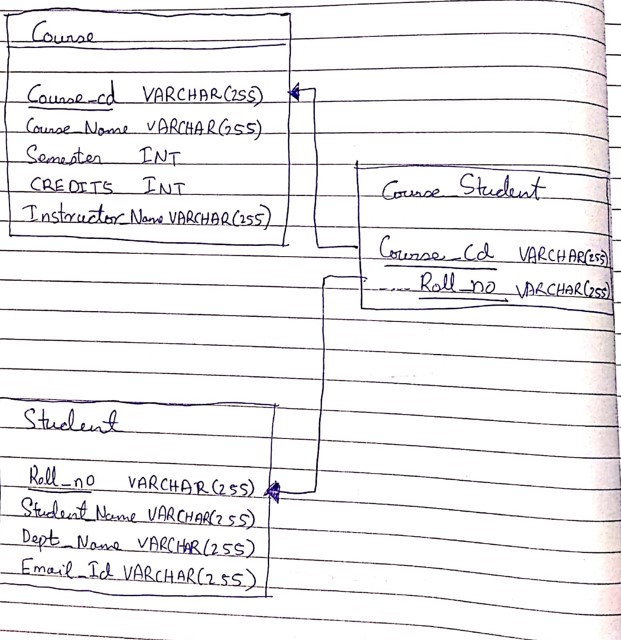 Course
Course_cd VARCHAR(255)
Course_Name VARCHAR(255)
Semester INT
CREDITS INT
Instructor_Name VARCHAR(255)
Course_Student
Course_Cd VARCHAR(255)
Roll_no VARCHAR(255)
Student
Roll_no VARCHAR(255)
Student_Name VARCHAR(255)
Dept_Name VARCHAR(255)
Email_Id VARCHAR(255)